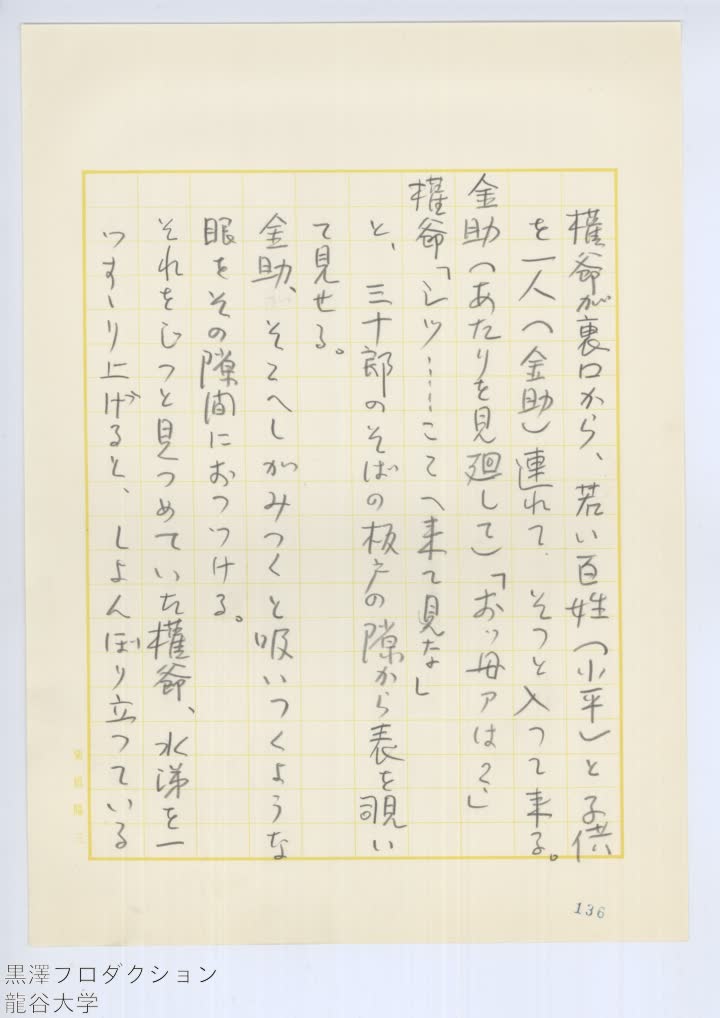 權爺が裏口から、若い百姓（小平）と子供
を一人（金助）連れて、そつと入つて来る。
金助（あたりを見廻して）「おッ母アは？」
權爺「シツ……こゝへ来て見な」
と、三十郎のそばの板戸の隙から表を覗い
て見せる。
金助、そこへしがみつくと吸いつくような
眼をその隙間におつつける。
それをじつと見つめていた權爺、水洟を一
つすゝり上げると、しよんぼり立つている
136
黒澤プロダクション
龍谷大学